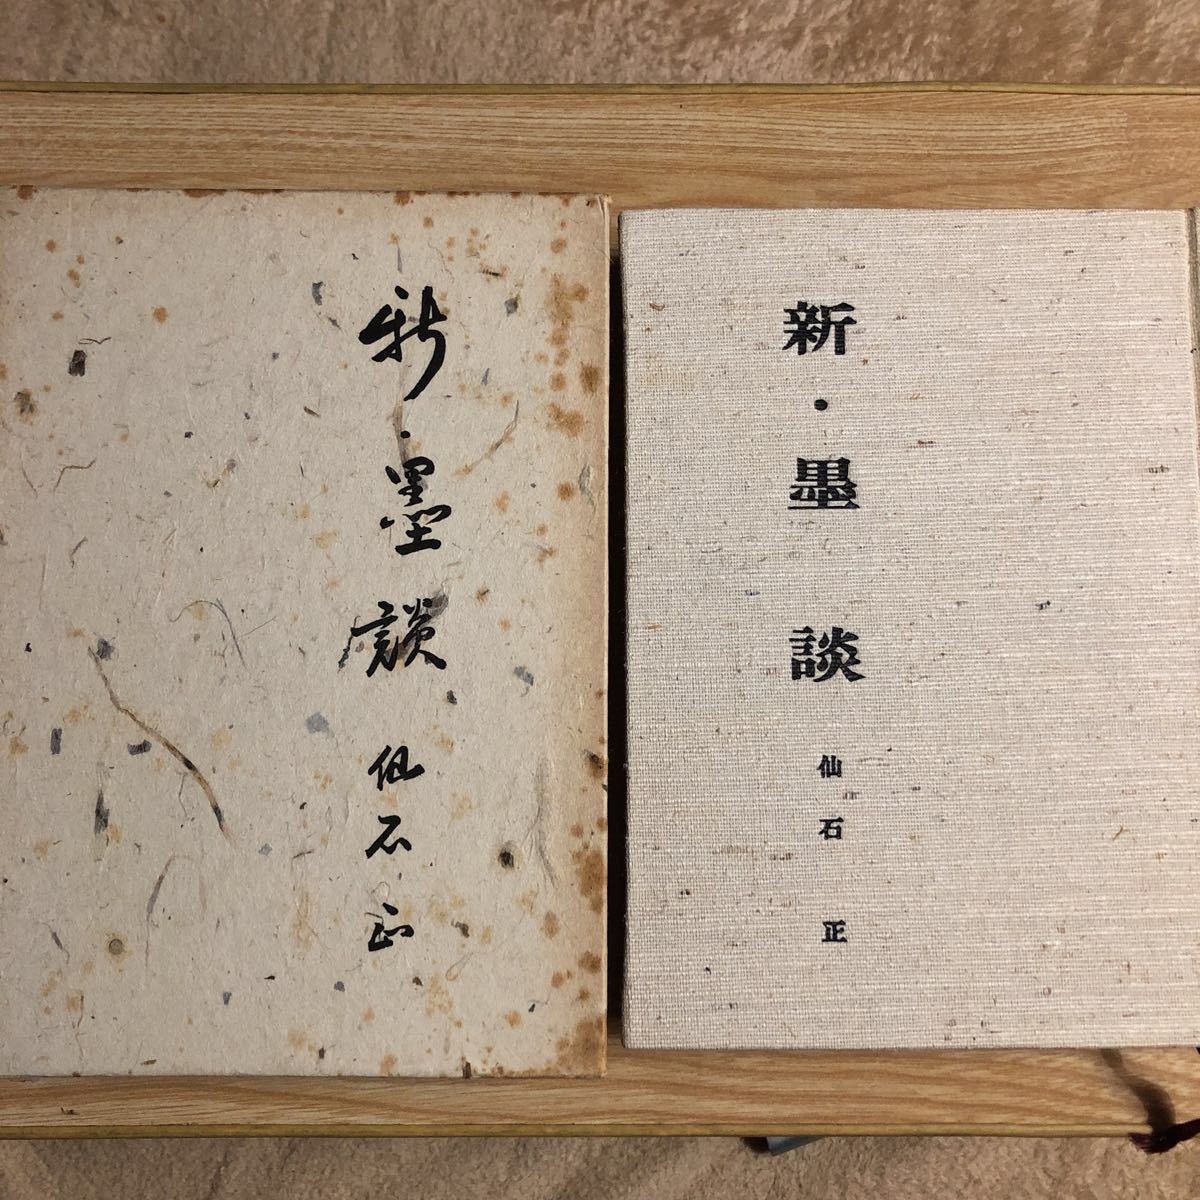 新・墨談
仙石正
新・墨談
仙石正